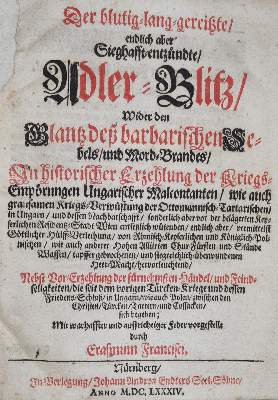 Der blutig-lang-gereitzte/
endlich aber
Sieghafft-entzündte/
Adler-Blitz/
Wider den
Glantz deß barbarischen Se-
bels/und Mord-Brandes/
In historischer Erzehlung der Kriegs-
Empörungen Ungarischer Malcontanten/ wie auch
grausamen Kriegs-Verwüstung der Ottomannisch-Tartarischen/
in Ungarn/ und dessen Nachbarschafft/ sonderlich aber vor der belägerten Key-
serlichen Residentz-Stadt Wien entsetzlich wütenden/ endlich aber/ vermittelst
Göttlicher Hülff-Verleihung/ von Römisch-Keyserlichen und Königlich-Pol-
nischen/ wie auch anderer Hohen Allürten Chur-Fürsten und Stände
Waffen/ tapffer gebrochenen/ und siegreichlich-überwundenen
Heer-Macht/ hervorleuchtend/
Nebst Vor-Erzehlung der fürnehmsten Händel/ und Feind-
seligkeiten/ die seit dem vorigen Türcken-Kriege und dessen
Friedens-Schluß/ in Ungarn/ wie auch Polen/ zwischen den
Christen/ Türcken/ Tartern/ und Cossacken/
sich begeben;
Mit warhaffter und auffrichtiger Feder vorgestellt
durch
Erasmum Francisci.
Nürnberg/
In Verlegung/ Johann Andreæ Endters Seel. Söhne/
ANNO M.DC.LXXXIV.